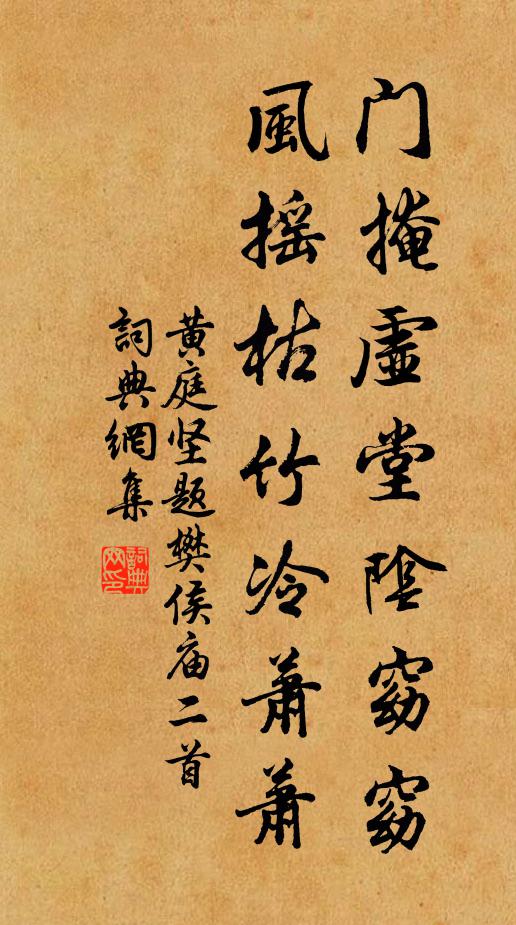 门掩虚堂陰窈窈
風摇枯竹冷蕭蕭
黄庭坚题樊侯庙二首
詞典網集
詞典網印